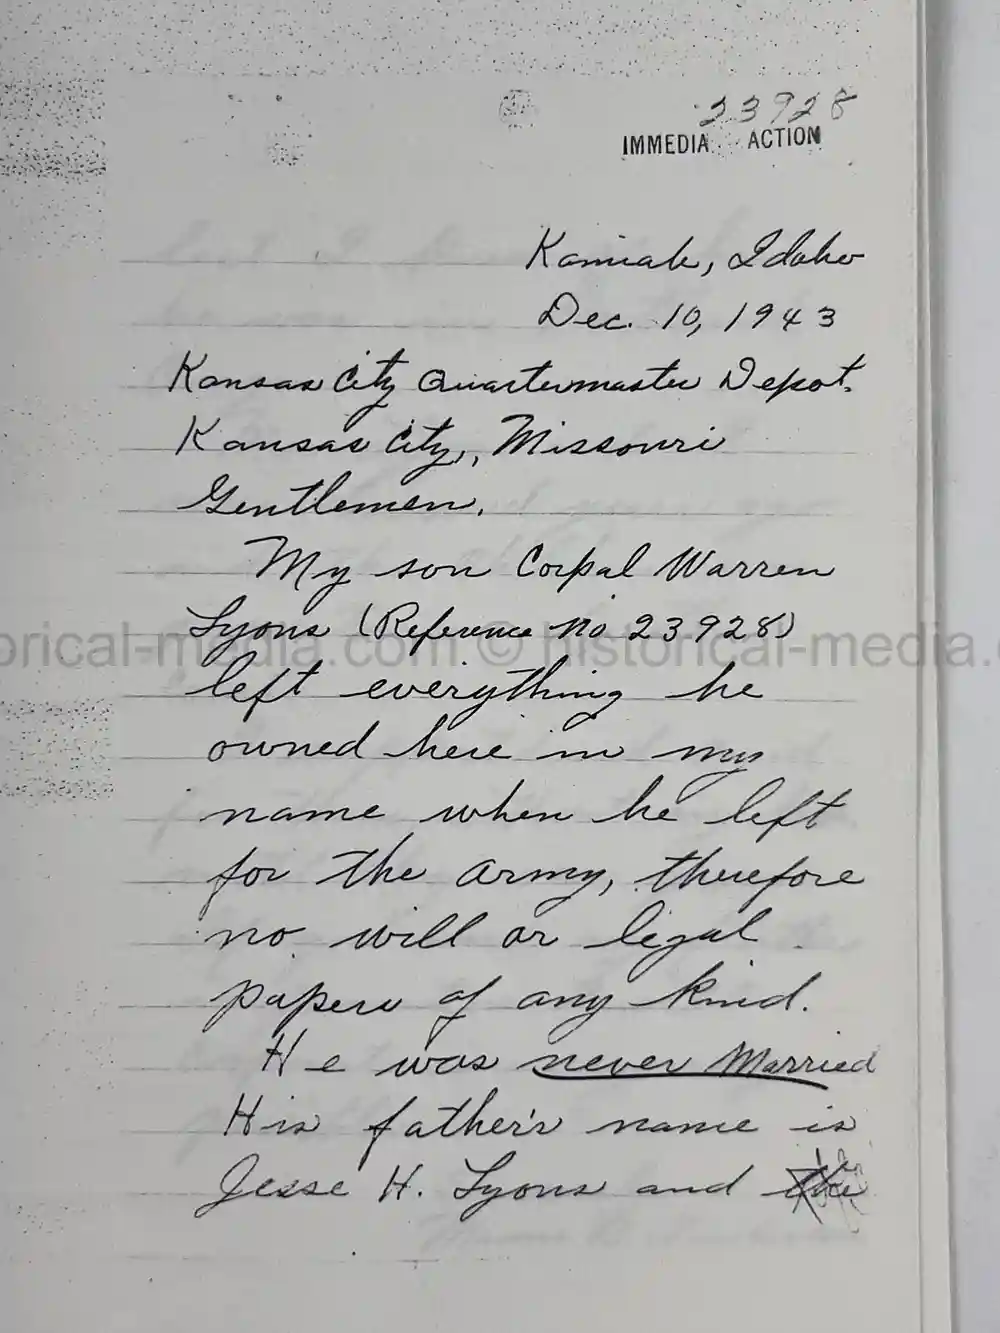 23928
IMMEDIA ACTION
Kamiah, Idaho
Dec. 10, 1943
Kansas City Quartermaster Depot.
Kansas City,, Missouri
Gentlemen.
My son Corpal Warren
Lyons (Reference no 23928)
orical-media.com © historical-media.c
left everything he
owned here in my
name when he left
for the army, therefore
no will or legal
papers of any kind.
He was never Married
His father's name is
Jesse H. Lyons and